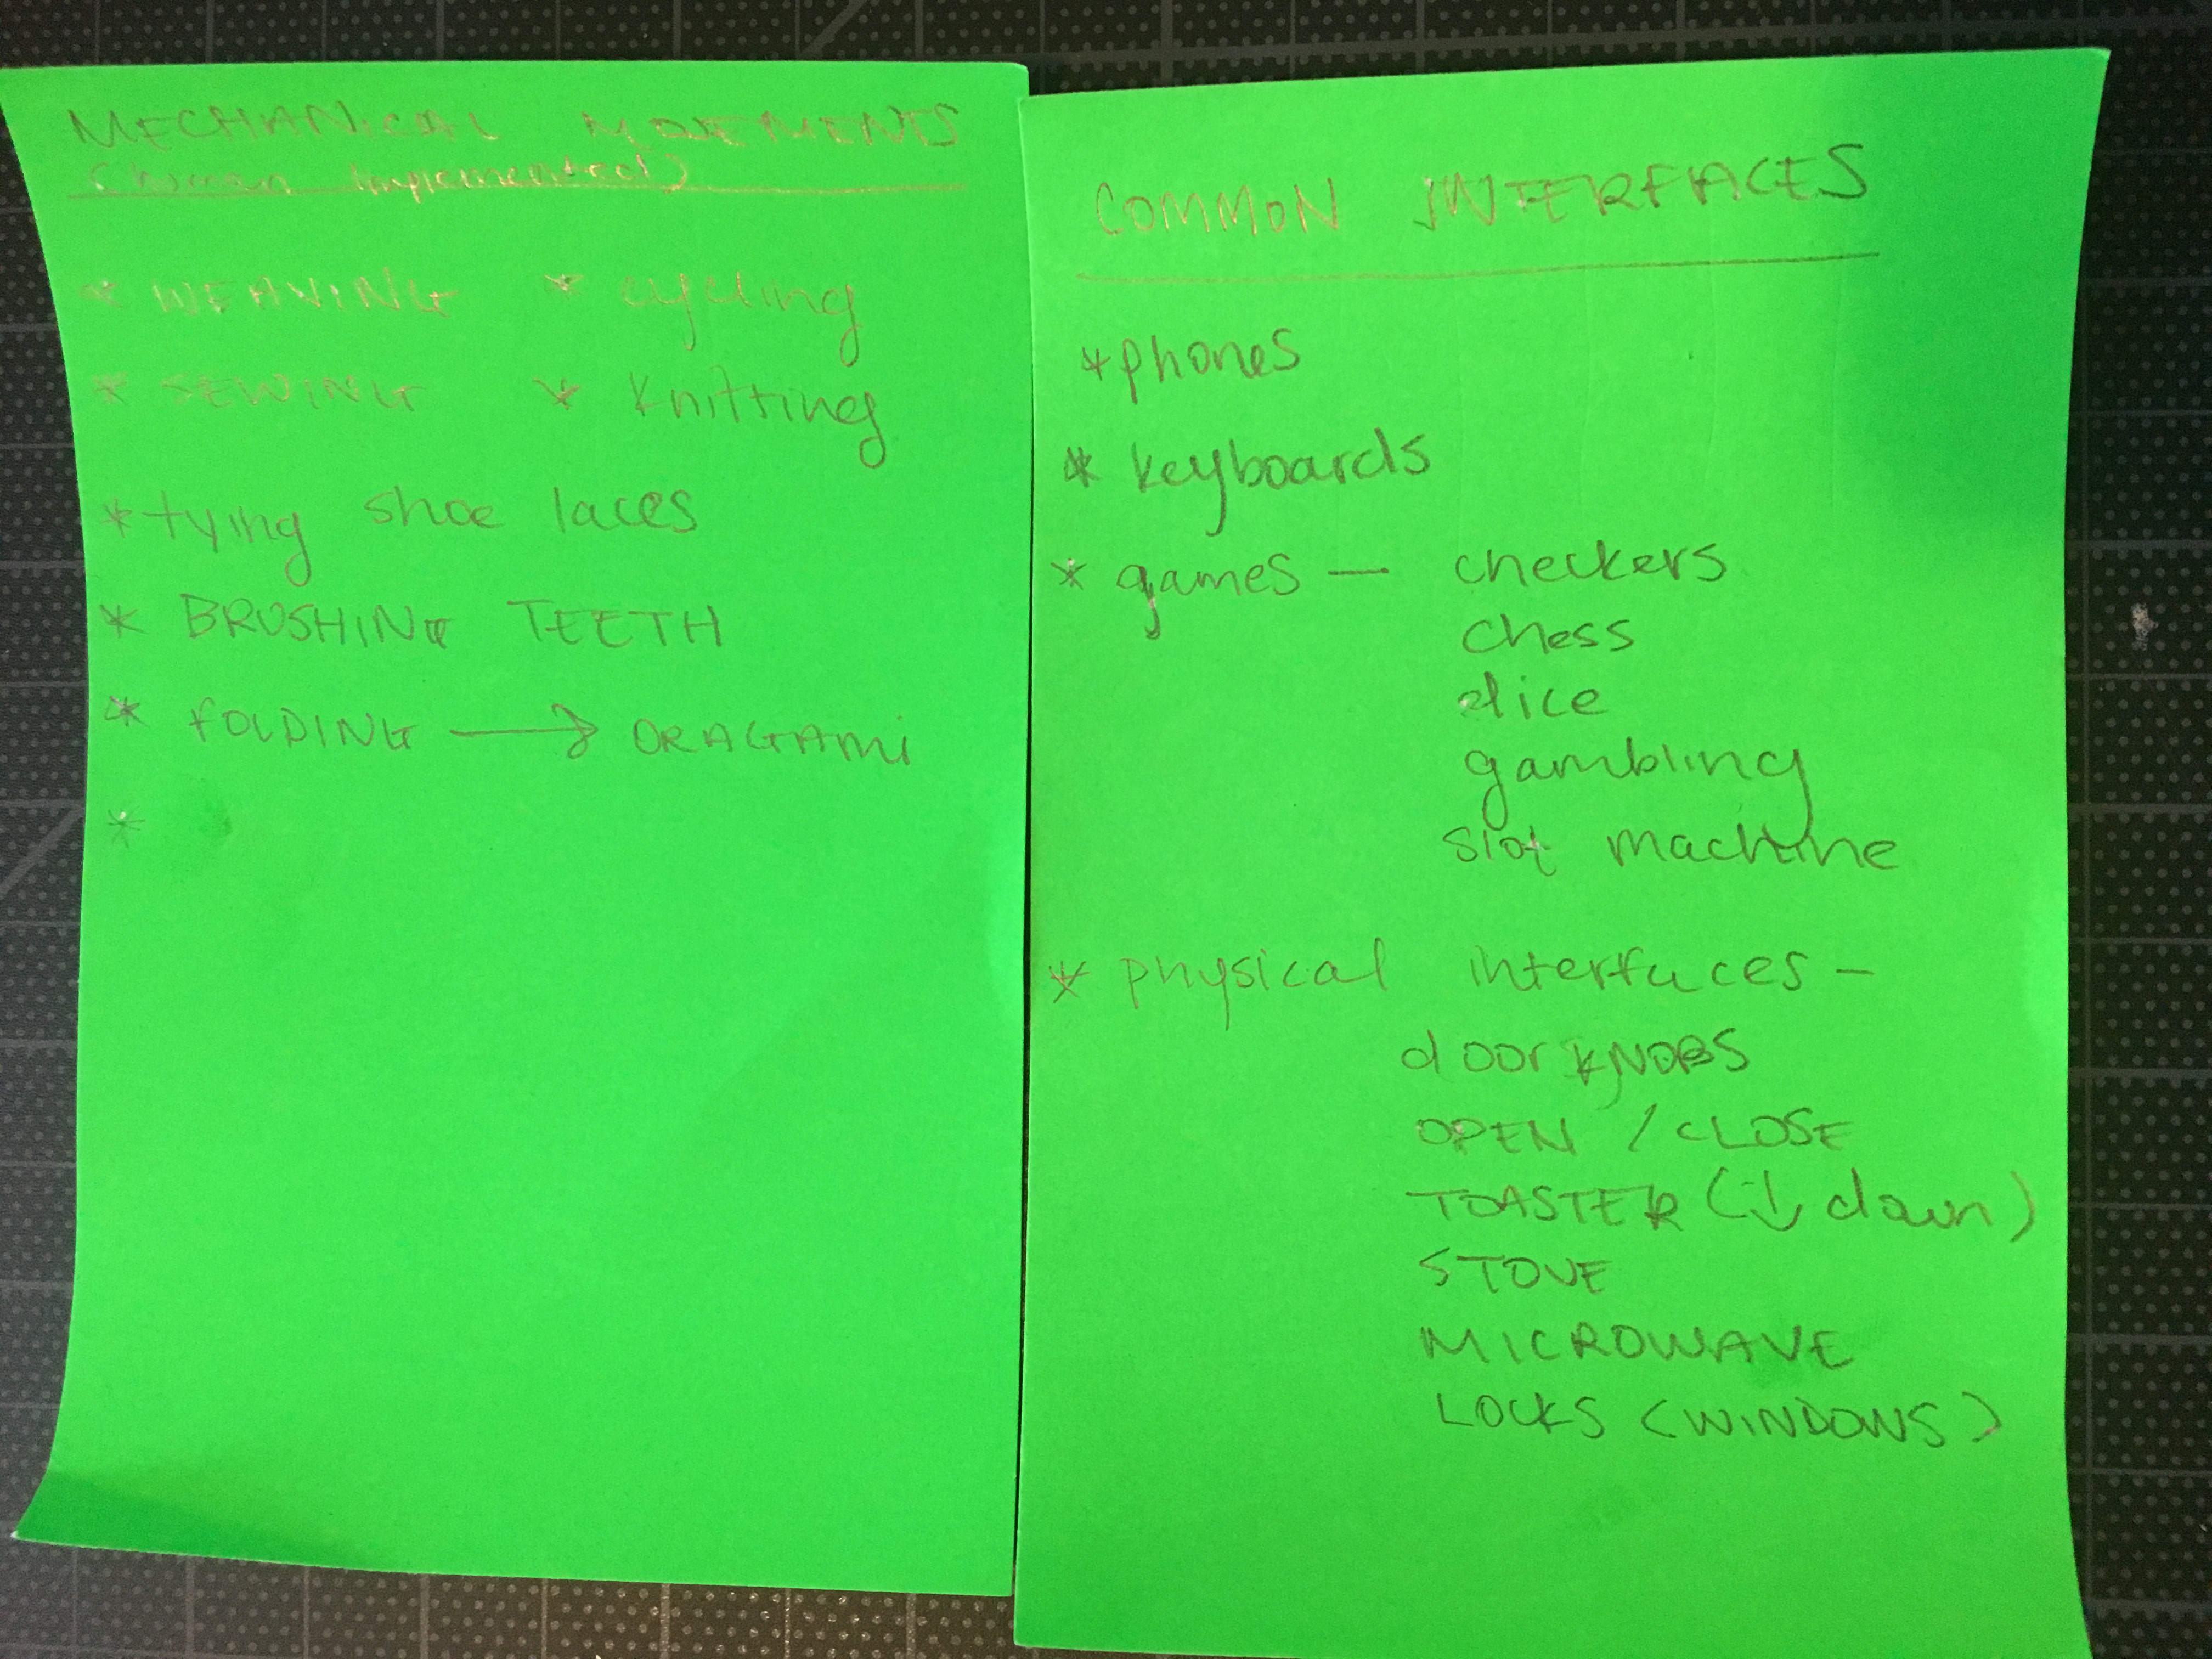 MECHANICAL MOVEMENTS
(human implemented)
* WEAVING * cycling
* SEWING * knitting
* tying shoe laces
* BRUSHING TEETH
* FOLDING → ORAGAMI
*
COMMON INTERFACES
* phones
* keyboards
* games — checkers
chess
dice
gambling
slot machine
* physical interfaces -
door KNOBS
OPEN / CLOSE
TOASTER (↓ down)
STOVE
MICROWAVE
LOCKS (WINDOWS)